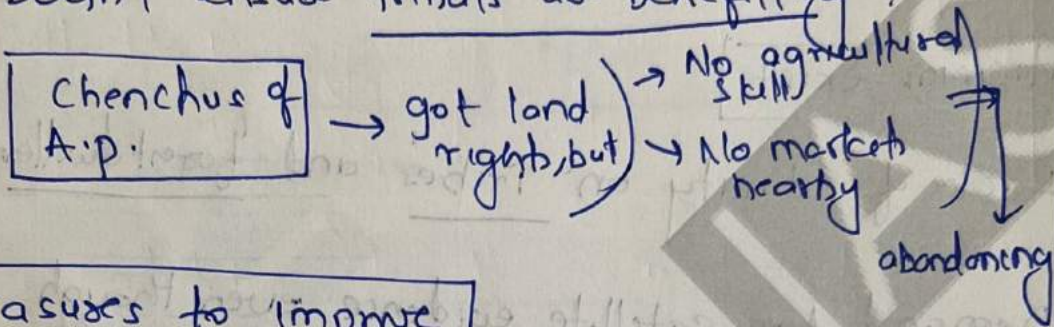 Chenchus of A.P. → got land rights, but → No agricultural skills
→ No markets nearby
abandoning
asures to improve